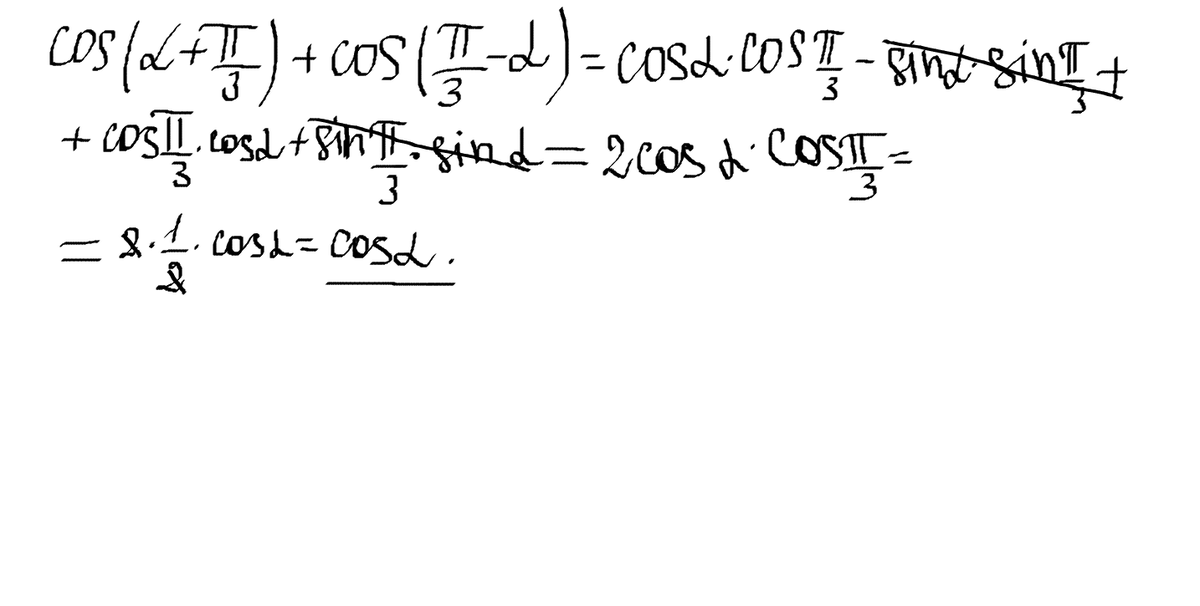 cos(α+π/3)+cos(π/3-α)=cosα·cosπ/3-sinα·sinπ/3+
+cosπ/3·cosα+sinπ/3·sinα=2cosα·cosπ/3=
=2·1/2·cosα=cosα.